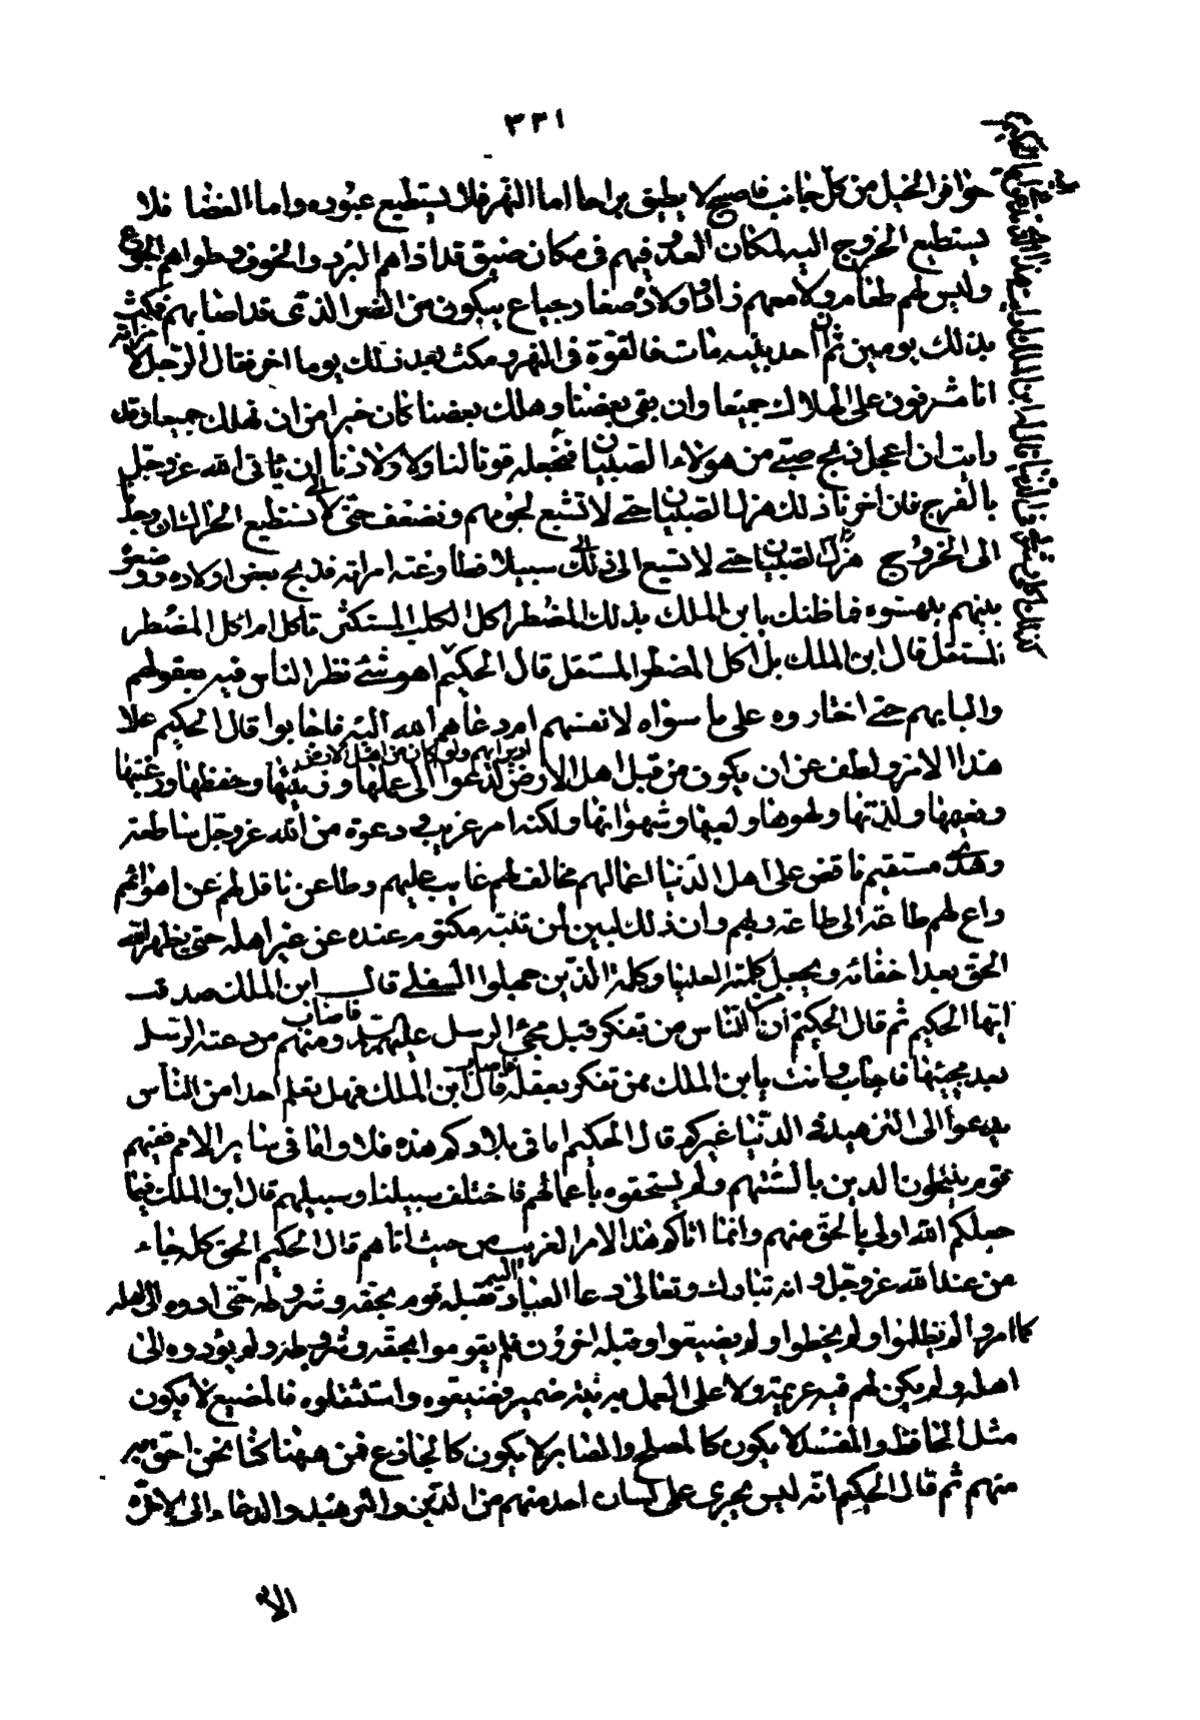 ٣٣١
حوافر الخيل من كل جانب فاصبح لا يطيق براحا اما النهر فلا يستطيع عبوره واما الفضا فلا
يستطيع الخروج اليه لمكان العدو فهم في مكان ضيق قد اذاهم البرد والخوف وطواهم الجوع
وليس لهم طعام ولا معهم زاد واولاده صغار جياع يبكون من الضر الذي قد اصابهم فمكث
بذلك يومين ثم ان احد بنيه مات فالقوه في النهر ومكث بعد ذلك يوما اخر فقال الرجل لامراته
انا مشرفون على الهلاك جميعا وان بقي بعضنا وهلك بعضنا كان خيرا من ان نهلك جميعا وقد
رايت ان اعجل ذبح صبي من هؤلاء الصبيان فنجعله قوتا لنا ولاولادنا الى ان ياتي الله عز وجل
بالفرج فان اخرنا ذلك هزل الصبيان حتى لا تشبع لحومهم ونضعف حتى لا نستطيع الحركة ان وجدنا
الى الخروج سبيلا فطاوعته امراته فذبح بعض اولاده ووضعوه
بينهم ينهشونه فما ظنك يا بن الملك بذلك المضطر اكل الكلب المستكثر ياكل ام اكل المضطر
المستقل قال ابن الملك بل اكل المضطر المستقل قال الحكيم اهو شئ نظر الناس فيه بعقولهم
والبابهم حتى اختاروه على ما سواه لانفسهم ام دعاهم الله اليه فاجابوا قال الحكيم علا
هذا الامر ولطف عن ان يكون من قبل اهل الارض لدعوا الى عملها وزينتها وحفظها ودعتها
او برايهم ولو كان من اهل الارض
ونعيمها ولذتها ولهوها ولعبها وشهواتها ولكنه امر غريب ودعوة من الله عز وجل ساطعة
وهدى مستقيم ناقض على اهل الدنيا اعمالهم مخالف لهم عايب عليهم وطاعن ناقل لهم عن اهوائهم
داع لهم الى طاعة ربهم وان ذلك لبين لمن تنبه مكتوم عنده عن غير اهله حتى يظهر الله
الحق بعد اخفائه ويجعل كلمته العليا وكلمة الذين جهلوا السفلى قال ابن الملك صدقت
ايها الحكيم ثم قال الحكيم ان من الناس من تفكر قبل مجئ الرسل عليهم السلام فاصاب ومنهم من دعته الرسل
بعد مجيئها فاجاب وانت يا بن الملك ممن تفكر بعقله فاصاب قال ابن الملك فهل تعلم احدا من الناس
يدعوا الى التزهيد في الدنيا غيركم قال الحكيم اما في بلادكم هذه فلا واما في ساير الامم ففيهم
قوم ينتحلون الدين بالسنتهم ولم يستحقوه باعمالهم فاختلف سبيلنا وسبيلهم قال ابن الملك فبما
جعلكم الله اولى بالحق منهم وانما اتاكم هذا الامر الغريب من حيث اتاهم قال الحكيم الحق كله جاء
من عند الله عز وجل وانه تبارك وتعالى دعا العباد اليه فقبله قوم بحقه وشروطه حتى ادوه الى اهله
كما امروا لم يظلموا ولم يخطوا ولم يضيعوا وقبله اخرون فلم يقوموا بحقه وشروطه ولم يؤدوه الى
اهله ولم يكن لهم فيه عزيمة ولا على العمل به نية ضمير فضيعوه واستثقلوه فالمضيع لا يكون
مثل الحافظ والمفسد لا يكون كالمصلح والصابر لا يكون كالجازع فمن ههنا كنا نحن احق به
منهم ثم قال الحكيم انه ليس يجري على لسان احد منهم من الدين والتزهيد والدعاء الى الاخرة
الا